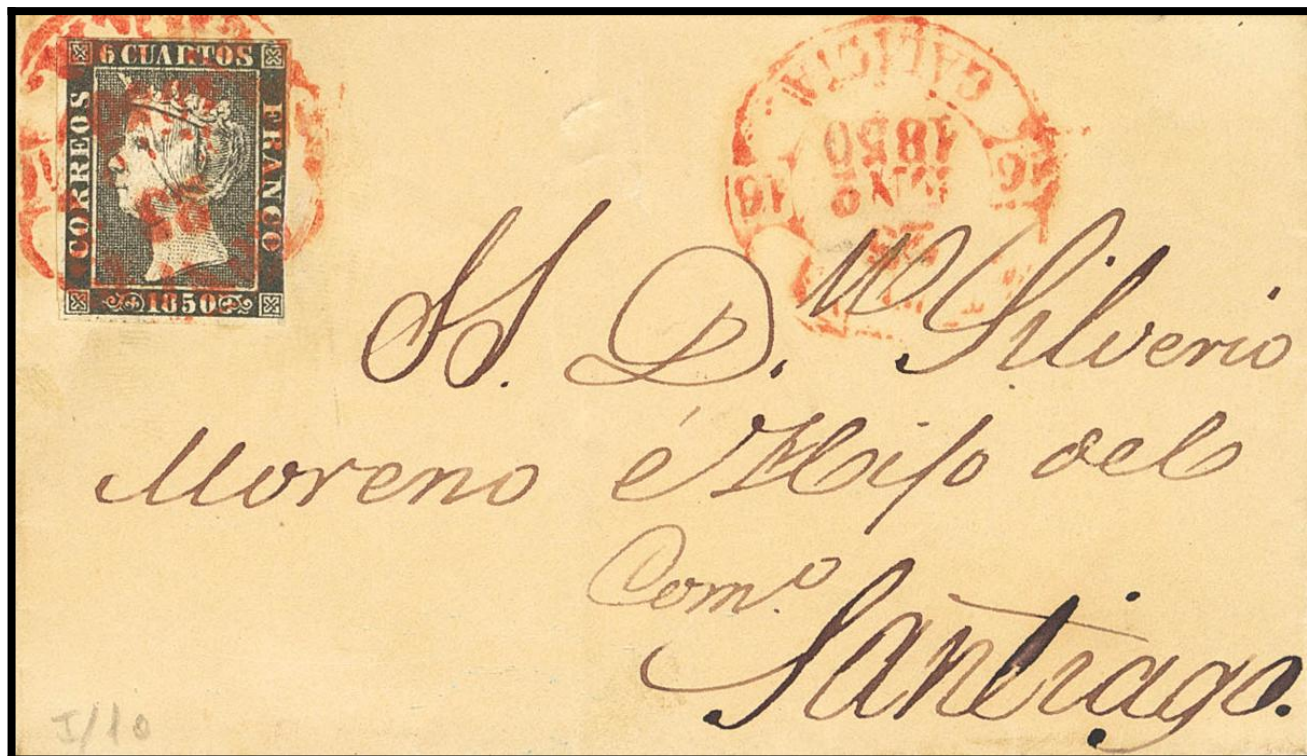 6 CUARTOS
CORREOS
FRANCO
1850
GALICIA
16 16
1850
S. D. M Silverio
Moreno é Hijo del
Com.º
Santiago.
I/10